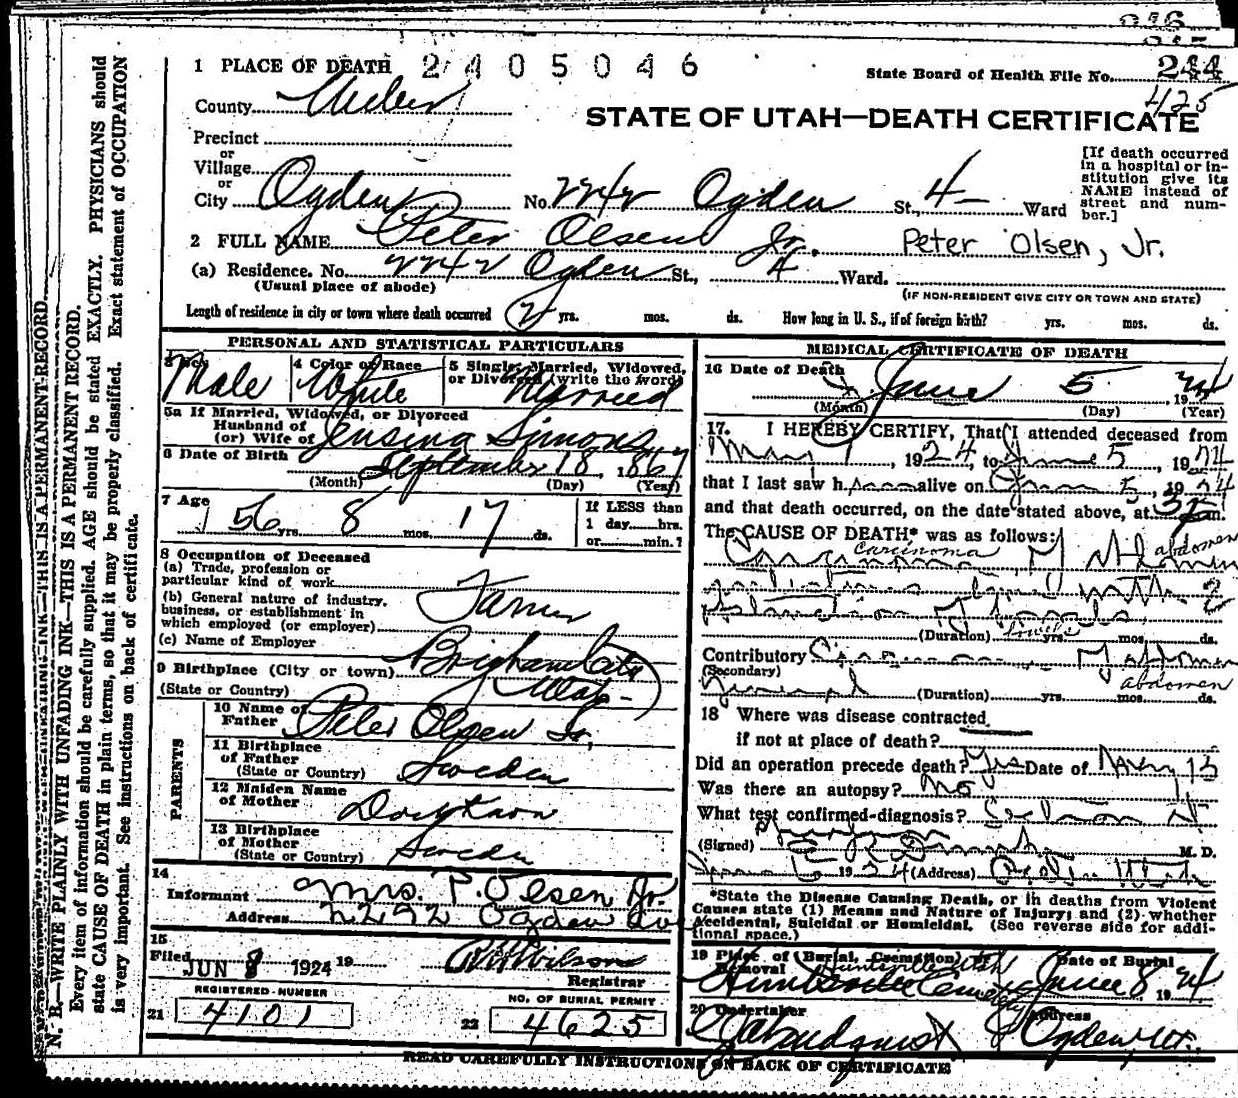 236
1 PLACE OF DEATH 2405046
State Board of Health File No. 244
425
County Weber
STATE OF UTAH—DEATH CERTIFICATE
Precinct
or
Village
or
City Ogden No. 2242 Ogden St., 4 Ward
[If death occurred in a hospital or institution give its NAME instead of street and number.]
2 FULL NAME Peter Olsen Jr. Peter Olsen, Jr.
(a) Residence. No. 2242 Ogden St., 4 Ward.
(Usual place of abode)
(IF NON-RESIDENT GIVE CITY OR TOWN AND STATE)
Length of residence in city or town where death occurred 2 yrs. mos. ds. How long in U. S., if of foreign birth? yrs. mos. ds.
PERSONAL AND STATISTICAL PARTICULARS
3 Sex Male 4 Color or Race White 5 Single, Married, Widowed, or Divorced (write the word) Married
5a If Married, Widowed, or Divorced
Husband of
(or) Wife of Jensina Simons
6 Date of Birth September 18, 1867
(Month) (Day) (Year)
7 Age 56 yrs. 8 mos. 17 ds. If LESS than 1 day hrs. or min.?
8 Occupation of Deceased
(a) Trade, profession or particular kind of work Farmer
(b) General nature of industry, business, or establishment in which employed (or employer)
(c) Name of Employer
9 Birthplace (City or town) Brigham City
(State or Country) Utah
PARENTS
10 Name of Father Peter Olsen Sr.
11 Birthplace of Father (State or Country) Sweden
12 Maiden Name of Mother
13 Birthplace of Mother (State or Country) Sweden
14
Informant Mrs. P. Olsen Jr.
Address Ogden
15
Filed JUN 8 1924 19 Wilson
Registrar
REGISTERED NUMBER
21 4101
NO. OF BURIAL PERMIT
22 4625
MEDICAL CERTIFICATE OF DEATH
16 Date of Death June 5 1924
(Month) (Day) (Year)
17. I HEREBY CERTIFY, That I attended deceased from
May 1, 1924, to June 5, 1924
that I last saw h alive on June 5, 1924
and that death occurred, on the date stated above, at m.
The CAUSE OF DEATH* was as follows:
carcinoma abdomen
(Duration) yrs. mos. ds.
Contributory abdomen
(Secondary)
(Duration) yrs. mos. ds.
18 Where was disease contracted
if not at place of death?
Did an operation precede death? Yes Date of
Was there an autopsy? no
What test confirmed diagnosis?
(Signed) M. D.
1924 (Address) Ogden Utah
*State the Disease Causing Death, or in deaths from Violent Causes state (1) Means and Nature of Injury; and (2) whether Accidental, Suicidal or Homicidal. (See reverse side for additional space.)
19 Place of (Burial, Cremation) or Removal Huntsville Utah
Huntsville Cemetery
Date of Burial June 8 1924
20 Undertaker Lindquist
Address Ogden, Ut.
READ CAREFULLY INSTRUCTIONS ON BACK OF CERTIFICATE
N. B.—WRITE PLAINLY WITH UNFADING INK—THIS IS A PERMANENT RECORD.
Every item of information should be carefully supplied. AGE should be stated EXACTLY. PHYSICIANS should
state CAUSE OF DEATH in plain terms, so that it may be properly classified. Exact statement of OCCUPATION
is very important. See instructions on back of certificate.